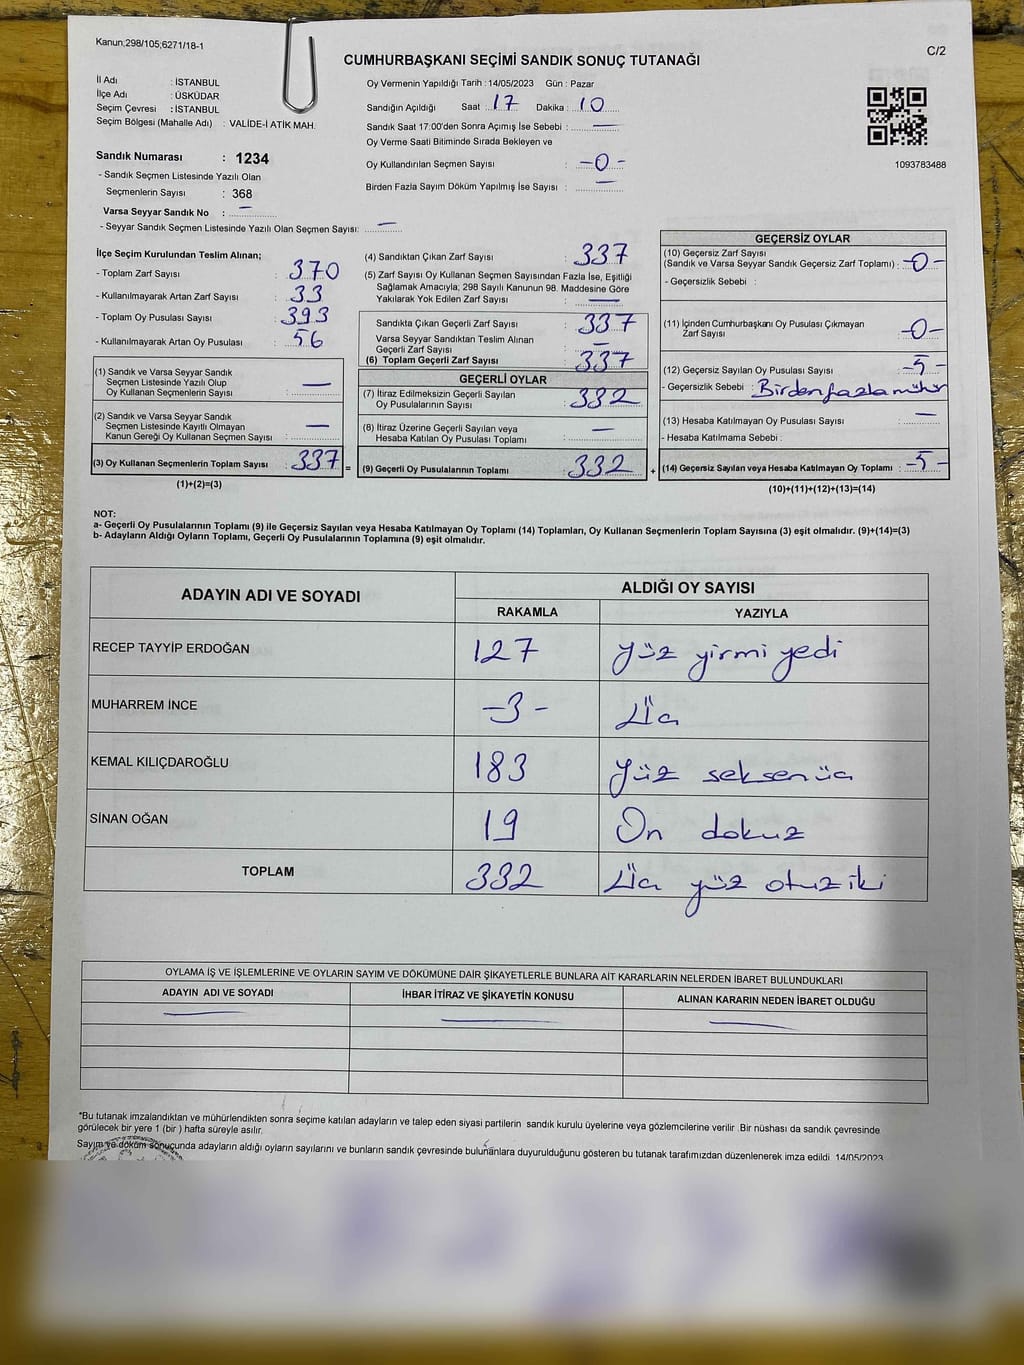 Kanun;298/105;6271/18-1
C/2
CUMHURBAŞKANI SEÇİMİ SANDIK SONUÇ TUTANAĞI
İl Adı : İSTANBUL
İlçe Adı : ÜSKÜDAR
Seçim Çevresi : İSTANBUL
Seçim Bölgesi (Mahalle Adı) : VALİDE-İ ATİK MAH.
Sandık Numarası : 1234
- Sandık Seçmen Listesinde Yazılı Olan
Seçmenlerin Sayısı : 368
Varsa Seyyar Sandık No : –
- Seyyar Sandık Seçmen Listesinde Yazılı Olan Seçmen Sayısı: –
Oy Vermenin Yapıldığı Tarih : 14/05/2023 Gün : Pazar
Sandığın Açıldığı Saat : 17 Dakika : 10
Sandık Saat 17:00'den Sonra Açımış İse Sebebi : —
Oy Verme Saati Bitiminde Sırada Bekleyen ve
Oy Kullandırılan Seçmen Sayısı : -0-
Birden Fazla Sayım Döküm Yapılmış İse Sayısı : —
1093783488
İlçe Seçim Kurulundan Teslim Alınan;
- Toplam Zarf Sayısı : 370
- Kullanılmayarak Artan Zarf Sayısı : 33
- Toplam Oy Pusulası Sayısı : 393
- Kullanılmayarak Artan Oy Pusulası : 56
(1) Sandık ve Varsa Seyyar Sandık
Seçmen Listesinde Yazılı Olup
Oy Kullanan Seçmenlerin Sayısı : —
(2) Sandık ve Varsa Seyyar Sandık
Seçmen Listesinde Kayıtlı Olmayan
Kanun Gereği Oy Kullanan Seçmen Sayısı : —
(3) Oy Kullanan Seçmenlerin Toplam Sayısı : 337 =
(1)+(2)=(3)
(4) Sandıktan Çıkan Zarf Sayısı : 337
(5) Zarf Sayısı Oy Kullanan Seçmen Sayısından Fazla İse, Eşitliği
Sağlamak Amacıyla; 298 Sayılı Kanunun 98. Maddesine Göre
Yakılarak Yok Edilen Zarf Sayısı : —
Sandıkta Çıkan Geçerli Zarf Sayısı : 337
Varsa Seyyar Sandıktan Teslim Alınan
Geçerli Zarf Sayısı : –
(6) Toplam Geçerli Zarf Sayısı : 337
GEÇERLİ OYLAR
(7) İtiraz Edilmeksizin Geçerli Sayılan
Oy Pusulalarının Sayısı : 332
(8) İtiraz Üzerine Geçerli Sayılan veya
Hesaba Katılan Oy Pusulası Toplamı : —
(9) Geçerli Oy Pusulalarının Toplamı : 332 +
GEÇERSİZ OYLAR
(10) Geçersiz Zarf Sayısı
(Sandık ve Varsa Seyyar Sandık Geçersiz Zarf Toplamı) : -0-
- Geçersizlik Sebebi :
(11) İçinden Cumhurbaşkanı Oy Pusulası Çıkmayan
Zarf Sayısı : -0-
(12) Geçersiz Sayılan Oy Pusulası Sayısı : -5-
- Geçersizlik Sebebi : Birden fazla mühür
(13) Hesaba Katılmayan Oy Pusulası Sayısı : —
- Hesaba Katılmama Sebebi :
(14) Geçersiz Sayılan veya Hesaba Katılmayan Oy Toplamı : -5-
(10)+(11)+(12)+(13)=(14)
NOT:
a- Geçerli Oy Pusulalarının Toplamı (9) ile Geçersiz Sayılan veya Hesaba Katılmayan Oy Toplamı (14) Toplamları, Oy Kullanan Seçmenlerin Toplam Sayısına (3) eşit olmalıdır. (9)+(14)=(3)
b- Adayların Aldığı Oyların Toplamı, Geçerli Oy Pusulalarının Toplamına (9) eşit olmalıdır.
ADAYIN ADI VE SOYADI ALDIĞI OY SAYISI
RAKAMLA YAZIYLA
RECEP TAYYİP ERDOĞAN 127 yüz yirmi yedi
MUHARREM İNCE -3- Üç
KEMAL KILIÇDAROĞLU 183 yüz seksen üç
SİNAN OĞAN 19 On dokuz
TOPLAM 332 Üç yüz otuz iki
OYLAMA İŞ VE İŞLEMLERİNE VE OYLARIN SAYIM VE DÖKÜMÜNE DAİR ŞİKAYETLERLE BUNLARA AİT KARARLARIN NELERDEN İBARET BULUNDUKLARI
ADAYIN ADI VE SOYADI İHBAR İTİRAZ VE ŞİKAYETİN KONUSU ALINAN KARARIN NEDEN İBARET OLDUĞU
*Bu tutanak imzalandıktan ve mühürlendikten sonra seçime katılan adayların ve talep eden siyasi partilerin sandık kurulu üyelerine veya gözlemcilerine verilir .Bir nüshası da sandık çevresinde
görülecek bir yere 1 (bir ) hafta süreyle asılır.
Sayım ve döküm sonucunda adayların aldığı oyların sayılarını ve bunların sandık çevresinde bulunanlara duyurulduğunu gösteren bu tutanak tarafımızdan düzenlenerek imza edildi. 14/05/2023